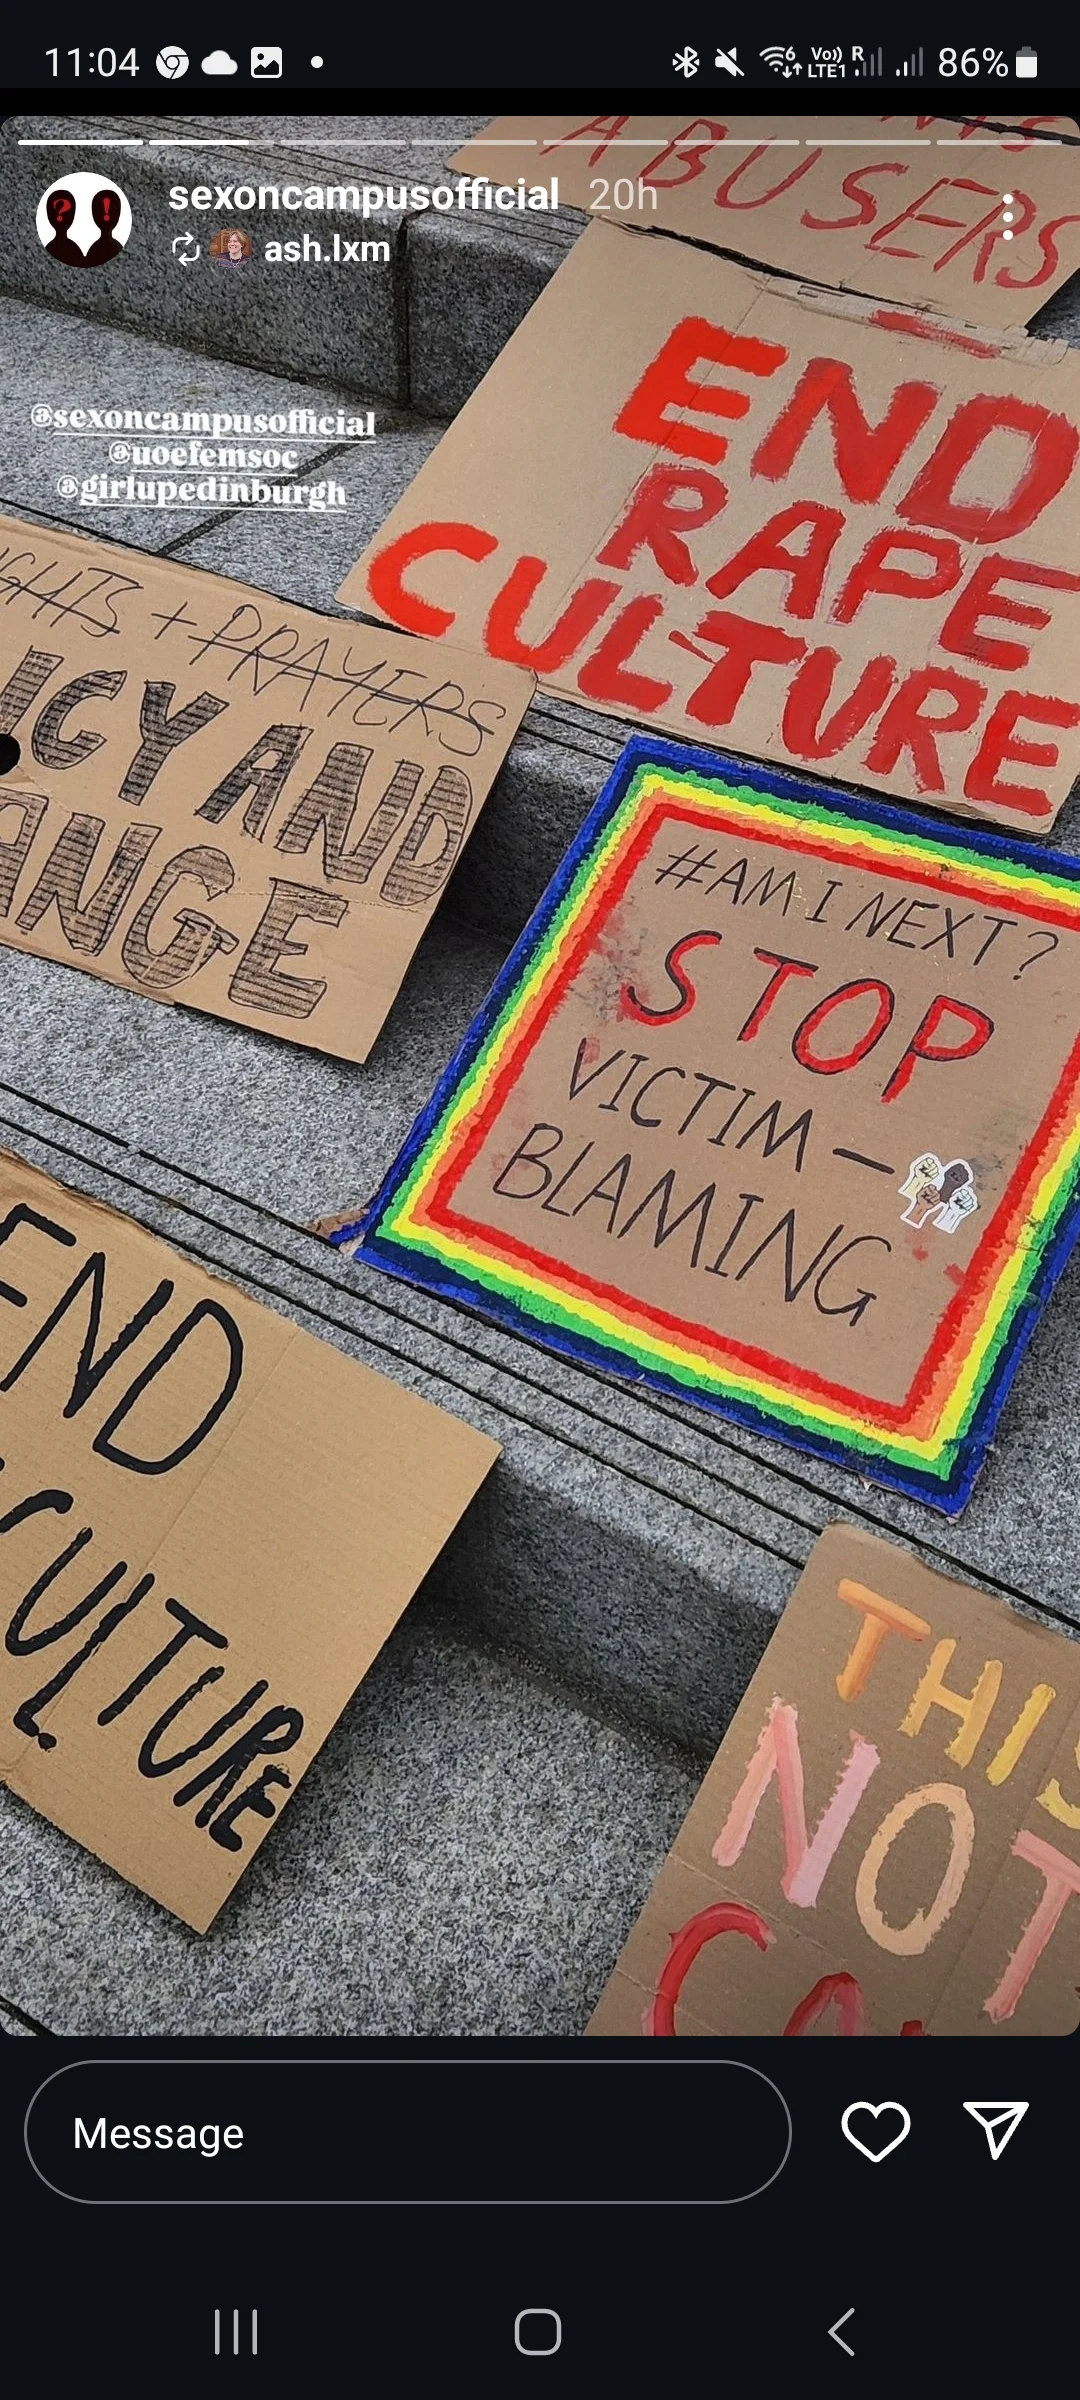 11:04
Vo)) R
LTE1
86%
sexoncampusofficial 20h
ash.lxm
@sexoncampusofficial
@uoefemsoc
@girlupedinburgh
ABUSERS
END
RAPE
CULTURE
+ PRAYERS
AND
#AM I NEXT?
STOP
VICTIM-
BLAMING
END
CULTURE
THIS
NOT
Message